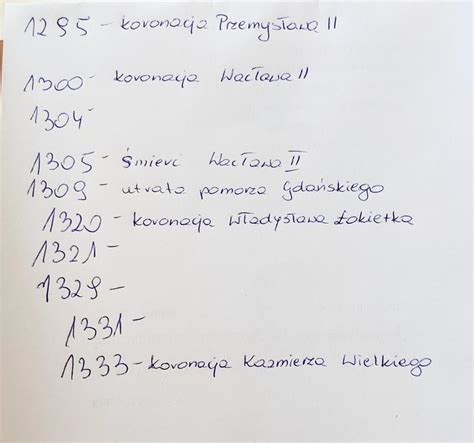 1295 - koronacja Przemysława II
1300 - koronacja Wacława II
1304 -
1305 - śmierć Wacława II
1309 - utrata pomorza Gdańskiego
1320 - koronacja Władysława Łokietka
1321 -
1329 -
1331 -
1333 - koronacja Kazmierza Wielkiego